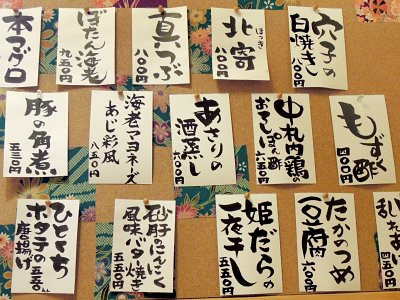 穴子の
白焼き
八〇〇円
北寄
ほっき
八〇〇円
真つぶ
八〇〇円
ぼたん海老
九五〇円
本マグロ
もずく
酢
四〇〇円
中札内鶏の
六〇〇円
あさりの
酒蒸し
六〇〇円
海老マヨネーズ
あじ彩風
八五〇円
豚の角煮
五三〇円
たかのつめ
豆腐
六〇〇円
姫だらの
一夜干し
五五〇円
砂肝のにんにく
風味バター焼き
五五〇円
ひとくち
ホタテの
唐揚げ
五五〇えん